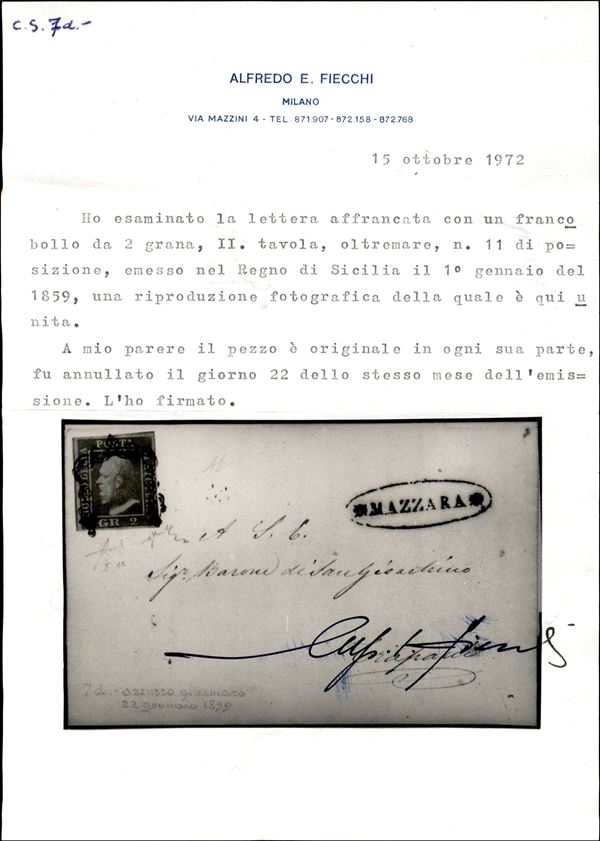 C. S. 7d.-
ALFREDO E. FIECCHI
MILANO
VIA MAZZINI 4 - TEL. 871.907 - 872.158 - 872.768
15 ottobre 1972
Ho esaminato la lettera affrancata con un franco
bollo da 2 grana, II. tavola, oltremare, n. 11 di po=
sizione, emesso nel Regno di Sicilia il 1º gennaio del
1859, una riproduzione fotografica della quale è qui u
nita.
A mio parere il pezzo è originale in ogni sua parte,
fu annullato il giorno 22 dello stesso mese dell'emis=
sione. L'ho firmato.
POSTA
GR 2
MAZZARA
A S. E.
Sigr Barone di San Gioachino
7d - azzurro oltremare
22 gennaio 1859